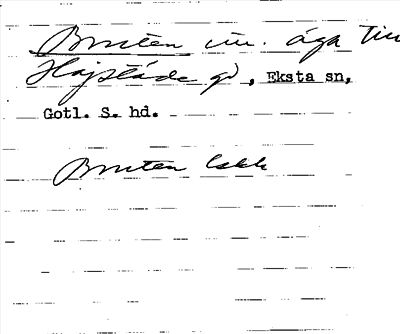 Bruten un. äga till
Hajstäde gd, Eksta sn,
Gotl. S. hd.
Bruten